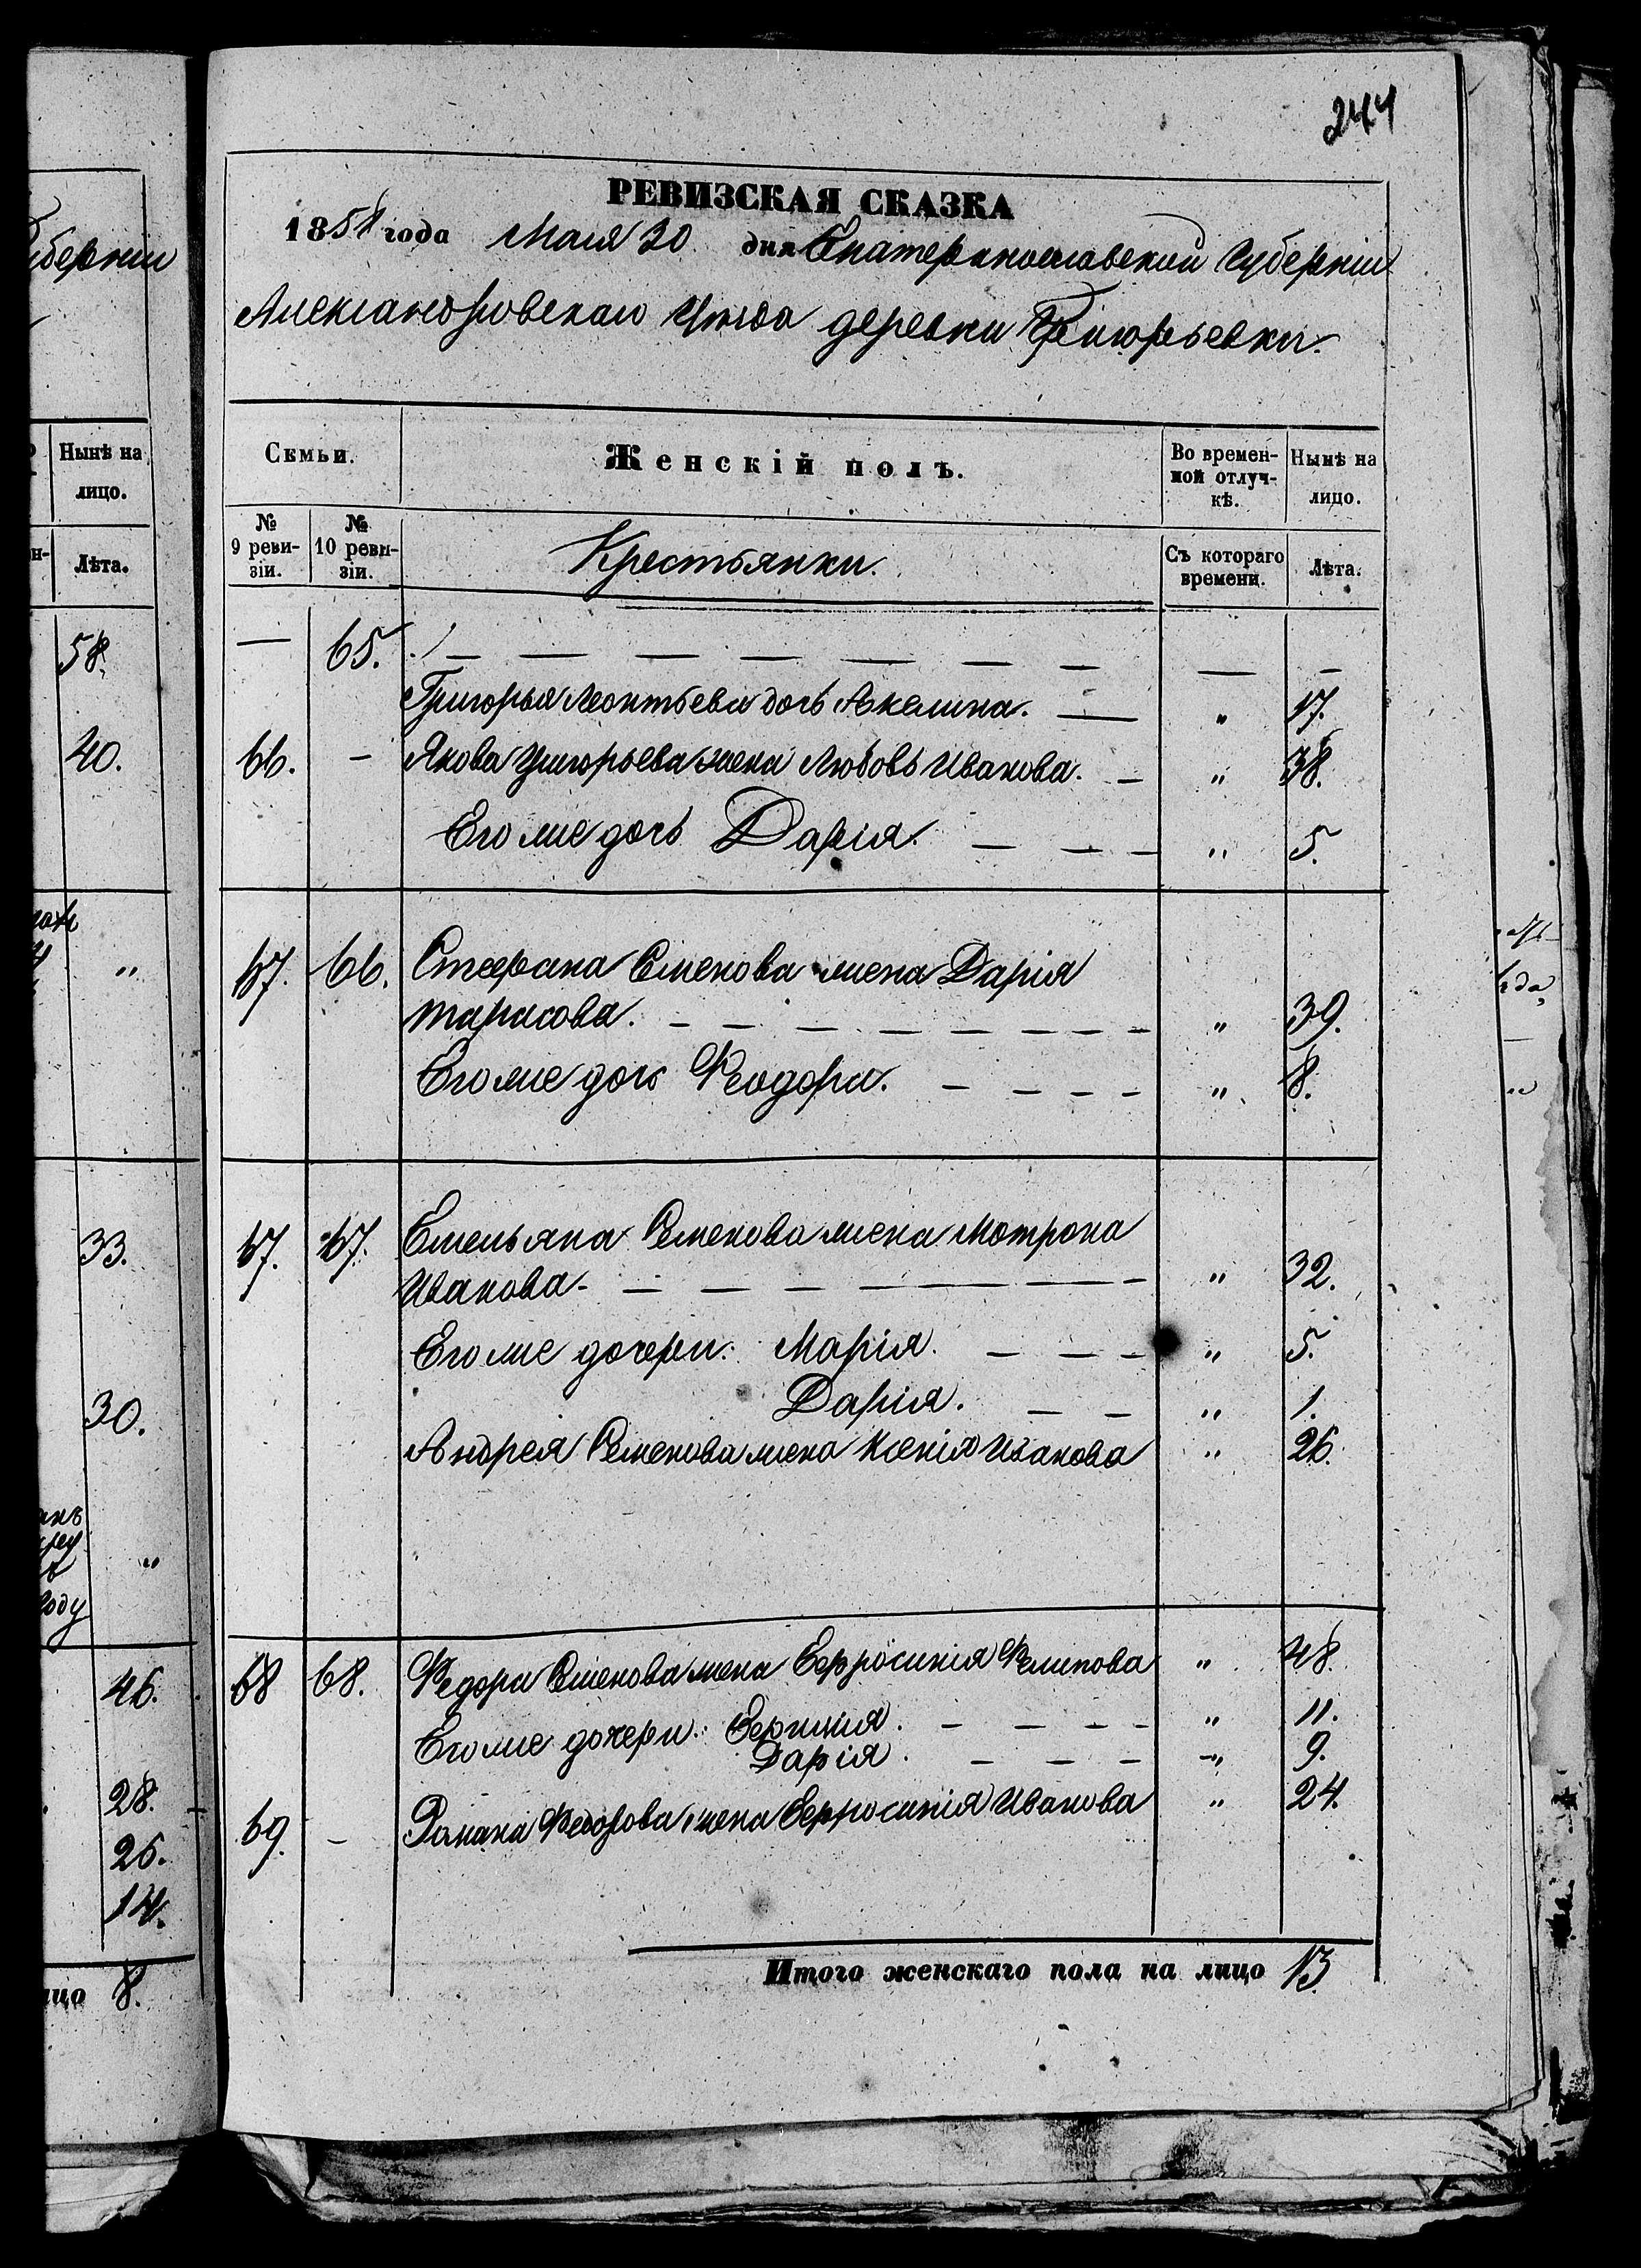 244
РЕВИЗСКАЯ СКАЗКА
1858 года Мая 30 дня Екатеринославской Губерніи
Александровскаго Уѣзда деревни Григорьевки.
Семьи. Женскій полъ. Во времен-
ной отлуч-
кѣ. Нынѣ на
лицо.
№
9 реви-
зіи. №
10 реви-
зіи. Крестьянки. Съ котораго
времени. Лѣта.
— 65. — — — — — — — — — —
Григорья Леонтьева дочь Акелина. — " 17.
66. – Якова Григорьева жена Любовь Иванова. – " 38.
Его же дочь Дарія. — — — " 5.
67. 66. Стефана Семенова жена Дарія
Тарасова. – – – – – – – – " 39.
Его же дочь Феодора. – – – – " 8.
67. 67. Емельяна Семенова жена Мотрона
Иванова – — — — — — — – " 32.
Его же дочери: Марія. — — – " 5.
Дарія. — — " 1.
Андрея Семенова жена Ксенія Иванова " 26.
68 68. Федора Семенова жена Евфросинія Филипова " 48.
Его же дочери: Евфимія. – – – – " 11.
Дарія. – – – " 9.
69. – Романа Федорова жена Евфросинія Иванова " 24.
Итого женскаго пола на лицо 13.
губерніи
Нынѣ на
лицо.
Лѣта.
58.
40.
"
33.
30.
"
году
46.
28.
26.
14.
лицо 8.